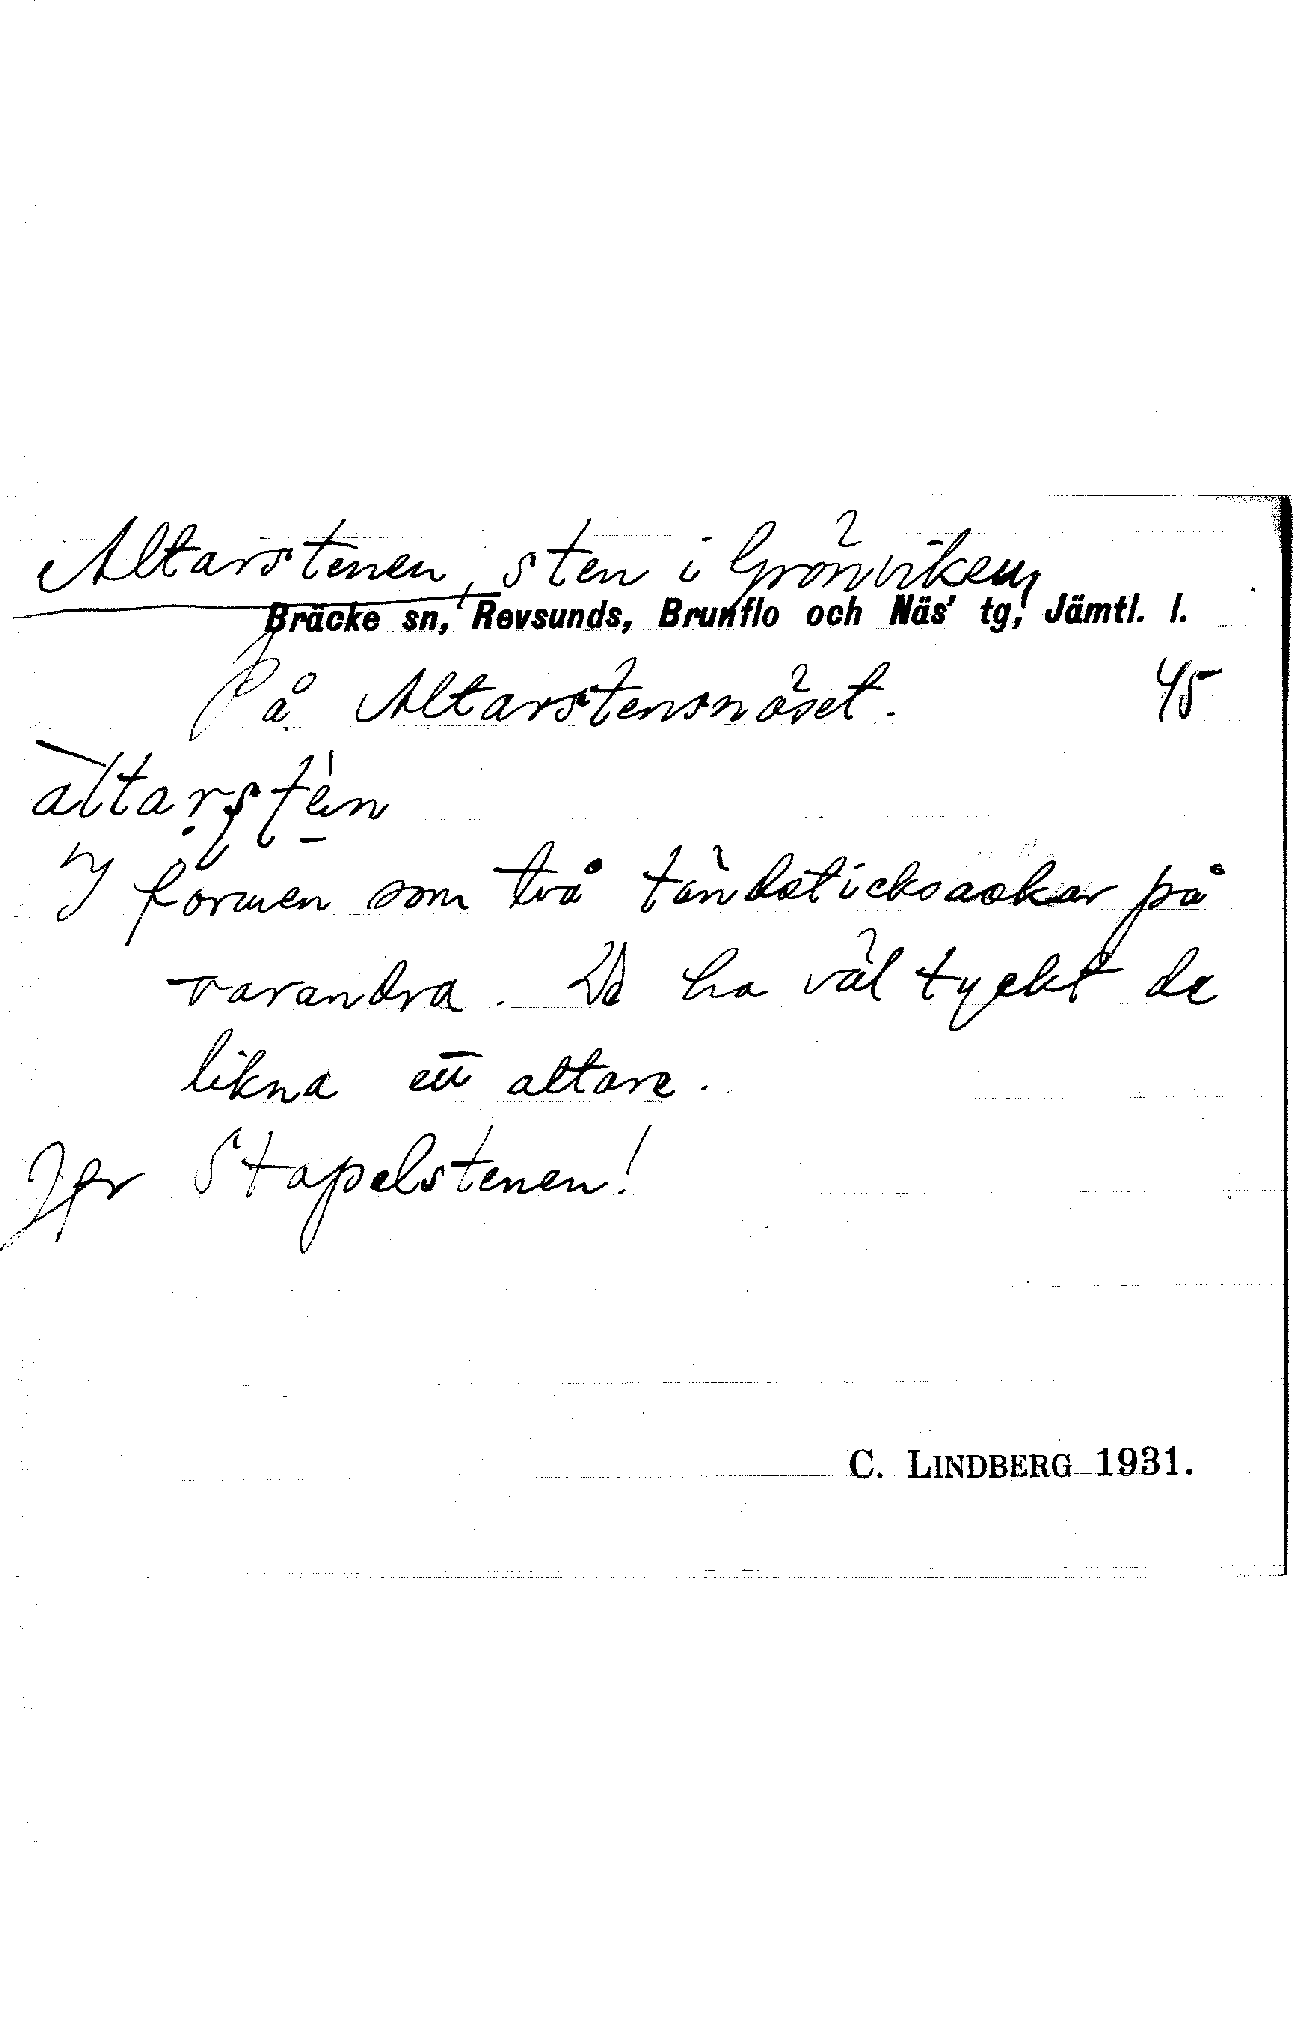 Altarstenen, sten i Grönviken,
Bräcke sn, Revsunds, Brunflo och Näs' tg, Jämtl. l.
På Altarstensnäset. 45
altarstén
I formen som två tändsticksaskar på
varandra. De ha väl tyckt de
likna ett altare.
Jfr Stapelstenen!
C. LINDBERG 1931.